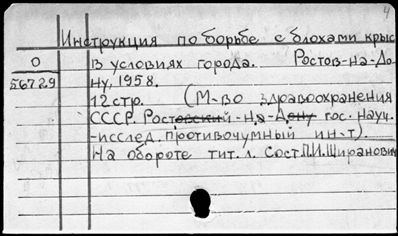 4
Инструкция по борьбе с блохами крыс
О
56729
в условиях города. Ростов-на-До-
ну, 1958.
12 стр. (М-во здравоохранения
СССР. Ростовский-на-Дону гос. науч.
-исслед. противочумный ин-т).
На обороте тит. л. Сост. П.И. Ширанович